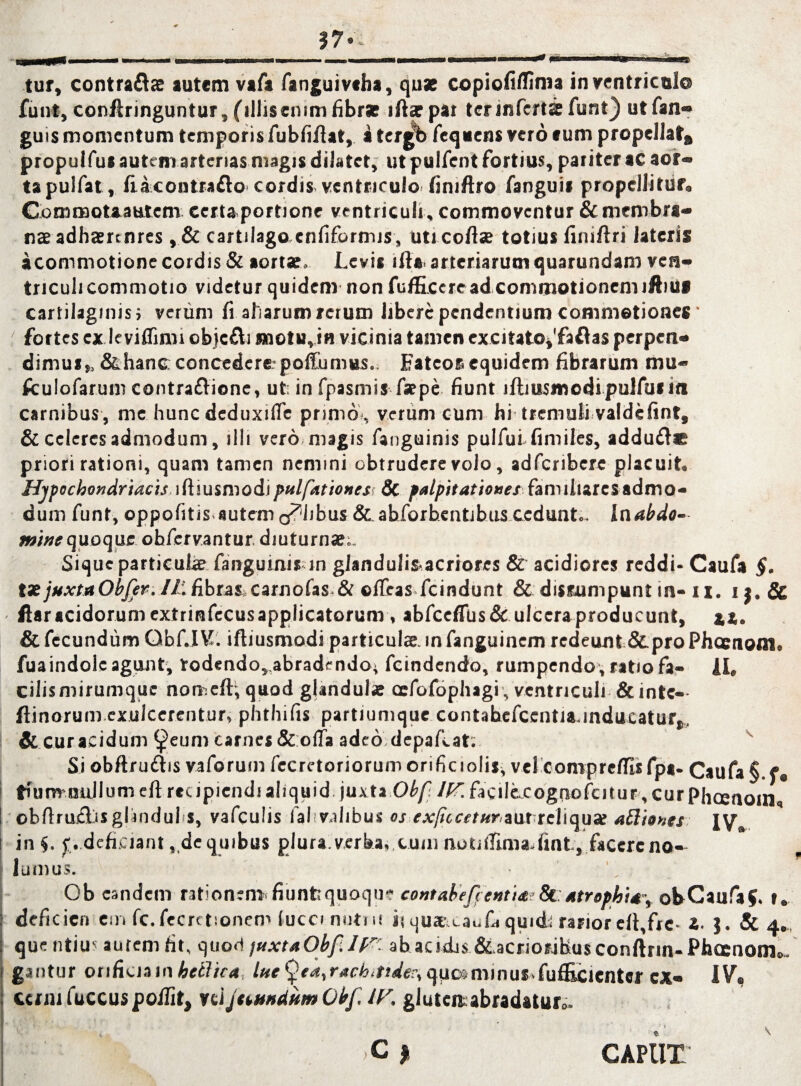 37.
tur, contractæ autem vasa sanguiveha, quæ copiosissima in ventriculo
sunt, constringuntur, (illis enim fibræ istæ parter insertæ sunt) ut san-
guis momentum temporis subsistat, à tergo sequens verò eum propellat,
propulsus autem arterias magis dilatet, ut pulsent fortius, pariter ac aor-
ta pulsat, si à contracto cordis ventriculo sinistro sanguis propellitur.
Commota autem certa portione ventriculi, commoventur & membra-
næ adhærentes, & cartilago ensiformis, uti costæ totius sinistri lateris
à commotione cordis & aortæ. Levis ista arteriarum quarundam ven-
triculi commotio videtur quidem non sufficere ad commotionem istius
cartilaginis; verùm si aliarum rerum liberè pendentium commotiones
fortes ex levissimi objecti motu, in vicinia tamen excitato, factas perpen-
dimus, & hanc concedere possumus. Fateor equidem fibrarum mu-
sculosarum contractione, ut in spasmis sæpe fiunt istiusmodi pulsus in
carnibus, me hunc deduxisse primò, verùm cum hi tremuli valdè sint,
& celeres admodum, illi verò magis sanguinis pulsui similes, adductæ
priori rationi, quam tamen nemini obtrudere volo, adscribere placuit.
Hypochondriacis istiusmodi pulsationes & palpitationes familiares admo-
dum sunt, oppositis autem ♂libus & absorbentibus cedunt. In abdo-
mine quoque observantur diuturnæ.
Sique particulæ sanguinis in glandulis acriores & acidiores reddi- Causa §.
tæ juxta Obser. II. fibras carnosas & osseas scindunt & disrumpunt in- 11. 13. &
star acidorum extrinsecus applicatorum, abscessus & ulcera producunt, 22.
& secundùm Obs. IV. istiusmodi particulæ in sanguinem redeunt & pro Phœnom.
sua indole agunt, rodendo, abradendo, scindendo, rumpendo, ratio fa- II.
cilis mirumque non est, quod glandulæ œsofophagi, ventriculi & inte-
stinorum exulcerentur, phthisis partiumque contabescentia inducatur,
& cur acidum ♀eum carnes & ossa adeò depascat.
Si obstructis vasorum secretoriorum orificiolis, vel compressis spa- Causa §. 5.
tium nullum est recipiendi aliquid juxta Obs. IV. facilè cognoscitur, cur Phœnom.
obstructis glandulis, vasculis salivalibus os exsiccetur aut reliquæ actiones IV.
in §. 5. deficiant, de quibus plura verba, cum notissima sint, facere no-
lumus.
Ob eandem rationem fiunt quoque contabescentiæ & atrophiæ, ob Causa §. 1.
deficien em sc. secretionem succi nutri ii quæ causa quidi rarior est, fre- 2. 3. & 4.
que ntius autem fit, quod juxta Obs. IV. ab acidis & acrioribus constrin- Phœnom.
gantur orificia in hectica lue ♀ea, rachitide, quo minus sufficienter ex- IV.
cerni succus possit, vel secundùm Obs. IV. gluten abradatur.
C 3 CAPUT